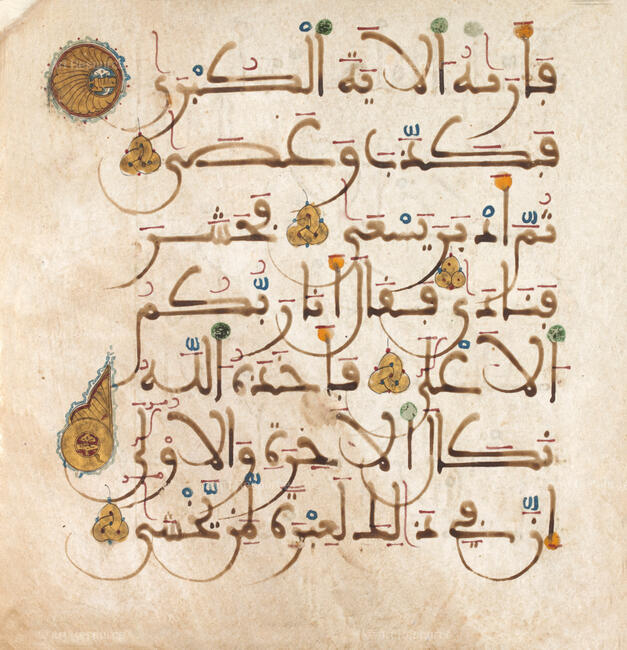 فَأَرَىٰهُ الْأَيَةَ الْكُبْرَىٰ
فَكَذَّبَ وَعَصَىٰ
ثُمَّ أَدْبَرَ يَسْعَىٰ فَحَشَرَ
فَنَادَىٰ فَقَالَ أَنَا رَبُّكُمُ
الْأَعْلَىٰ فَأَخَذَهُ اللَّهُ
نَكَالَ الْأَخِرَةِ وَالْأُولَىٰ
إِنَّ فِي ذَٰلِكَ لَعِبْرَةً لِمَنْ يَخْشَىٰ